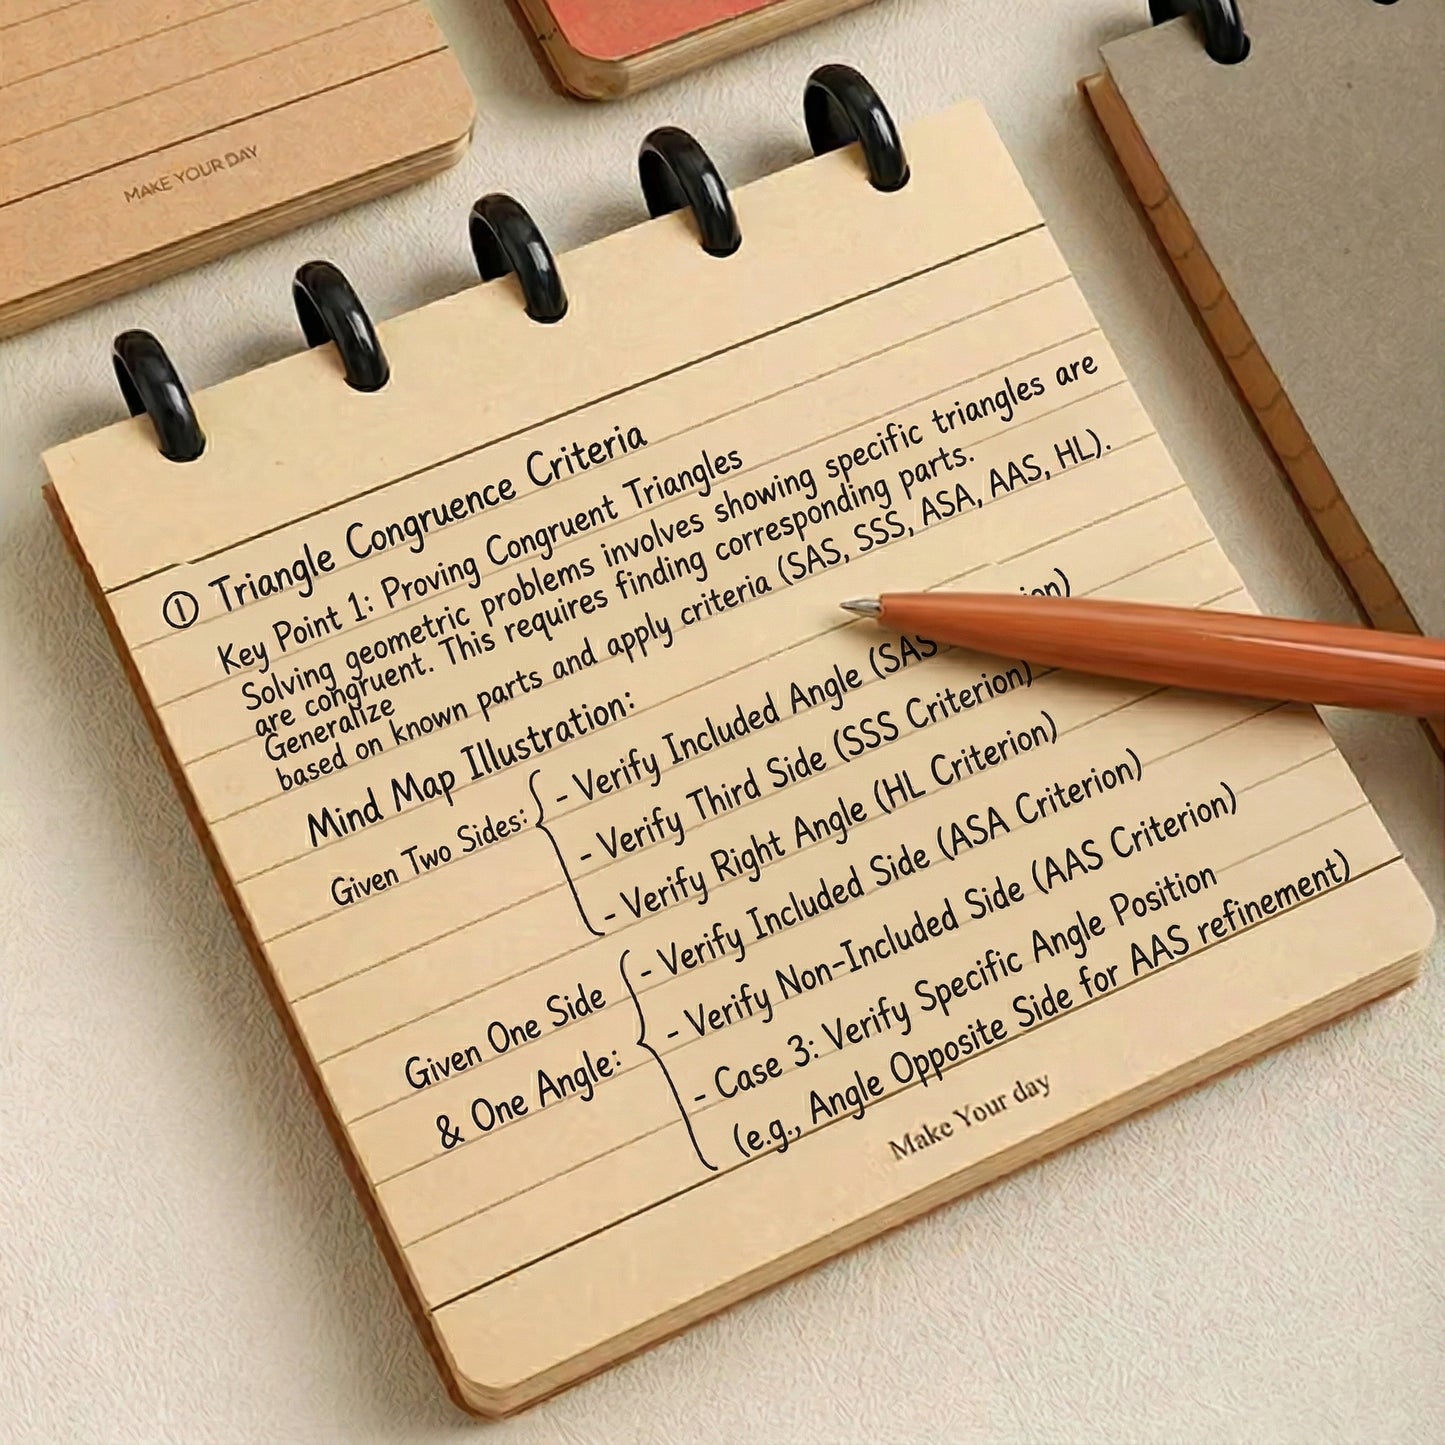 MAKE YOUR DAY
① Triangle Congruence Criteria
Key Point 1: Proving Congruent Triangles
Solving geometric problems involves showing specific triangles are
are congruent. This requires finding corresponding parts.
Generalize
based on known parts and apply criteria (SAS, SSS, ASA, AAS, HL).
Mind Map Illustration:
Given Two Sides:
- Verify Included Angle (SAS
- Verify Third Side (SSS Criterion)
- Verify Right Angle (HL Criterion)
Given One Side
& One Angle:
- Verify Included Side (ASA Criterion)
- Verify Non-Included Side (AAS Criterion)
- Case 3: Verify Specific Angle Position
(e.g., Angle Opposite Side for AAS refinement)
Make Your day